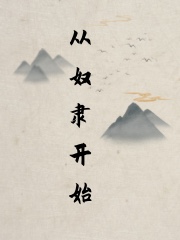 从奴隶开始